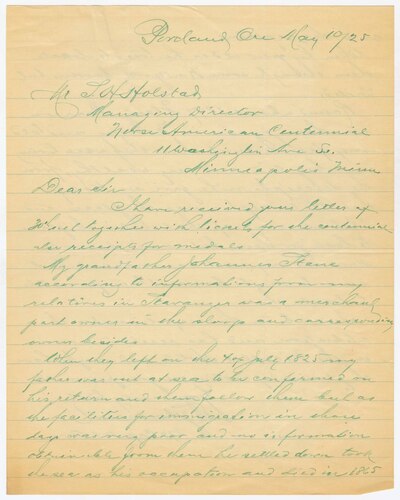 Portland Ore May 10/25
Mr S. H. Holstad
Managing Director
Norse American Centennial
11 Washington Ave So.
Minneapolis Minn
Dear Sir
I have received your letter of
together with for the centennial
also receipts for medals
My grandfather Johannes Stene
according to informations from my
relatives in Stavanger was a merchant
part owner in the sloop and
owner besides
When they left on the 4 of July 1825 my
father was out at sea to be confirmed on
his return and then follow them but as
the facilities for immigration in those
days was very poor and no information
obtainable from them he settled down took
the sea as his occupation and died in 1865